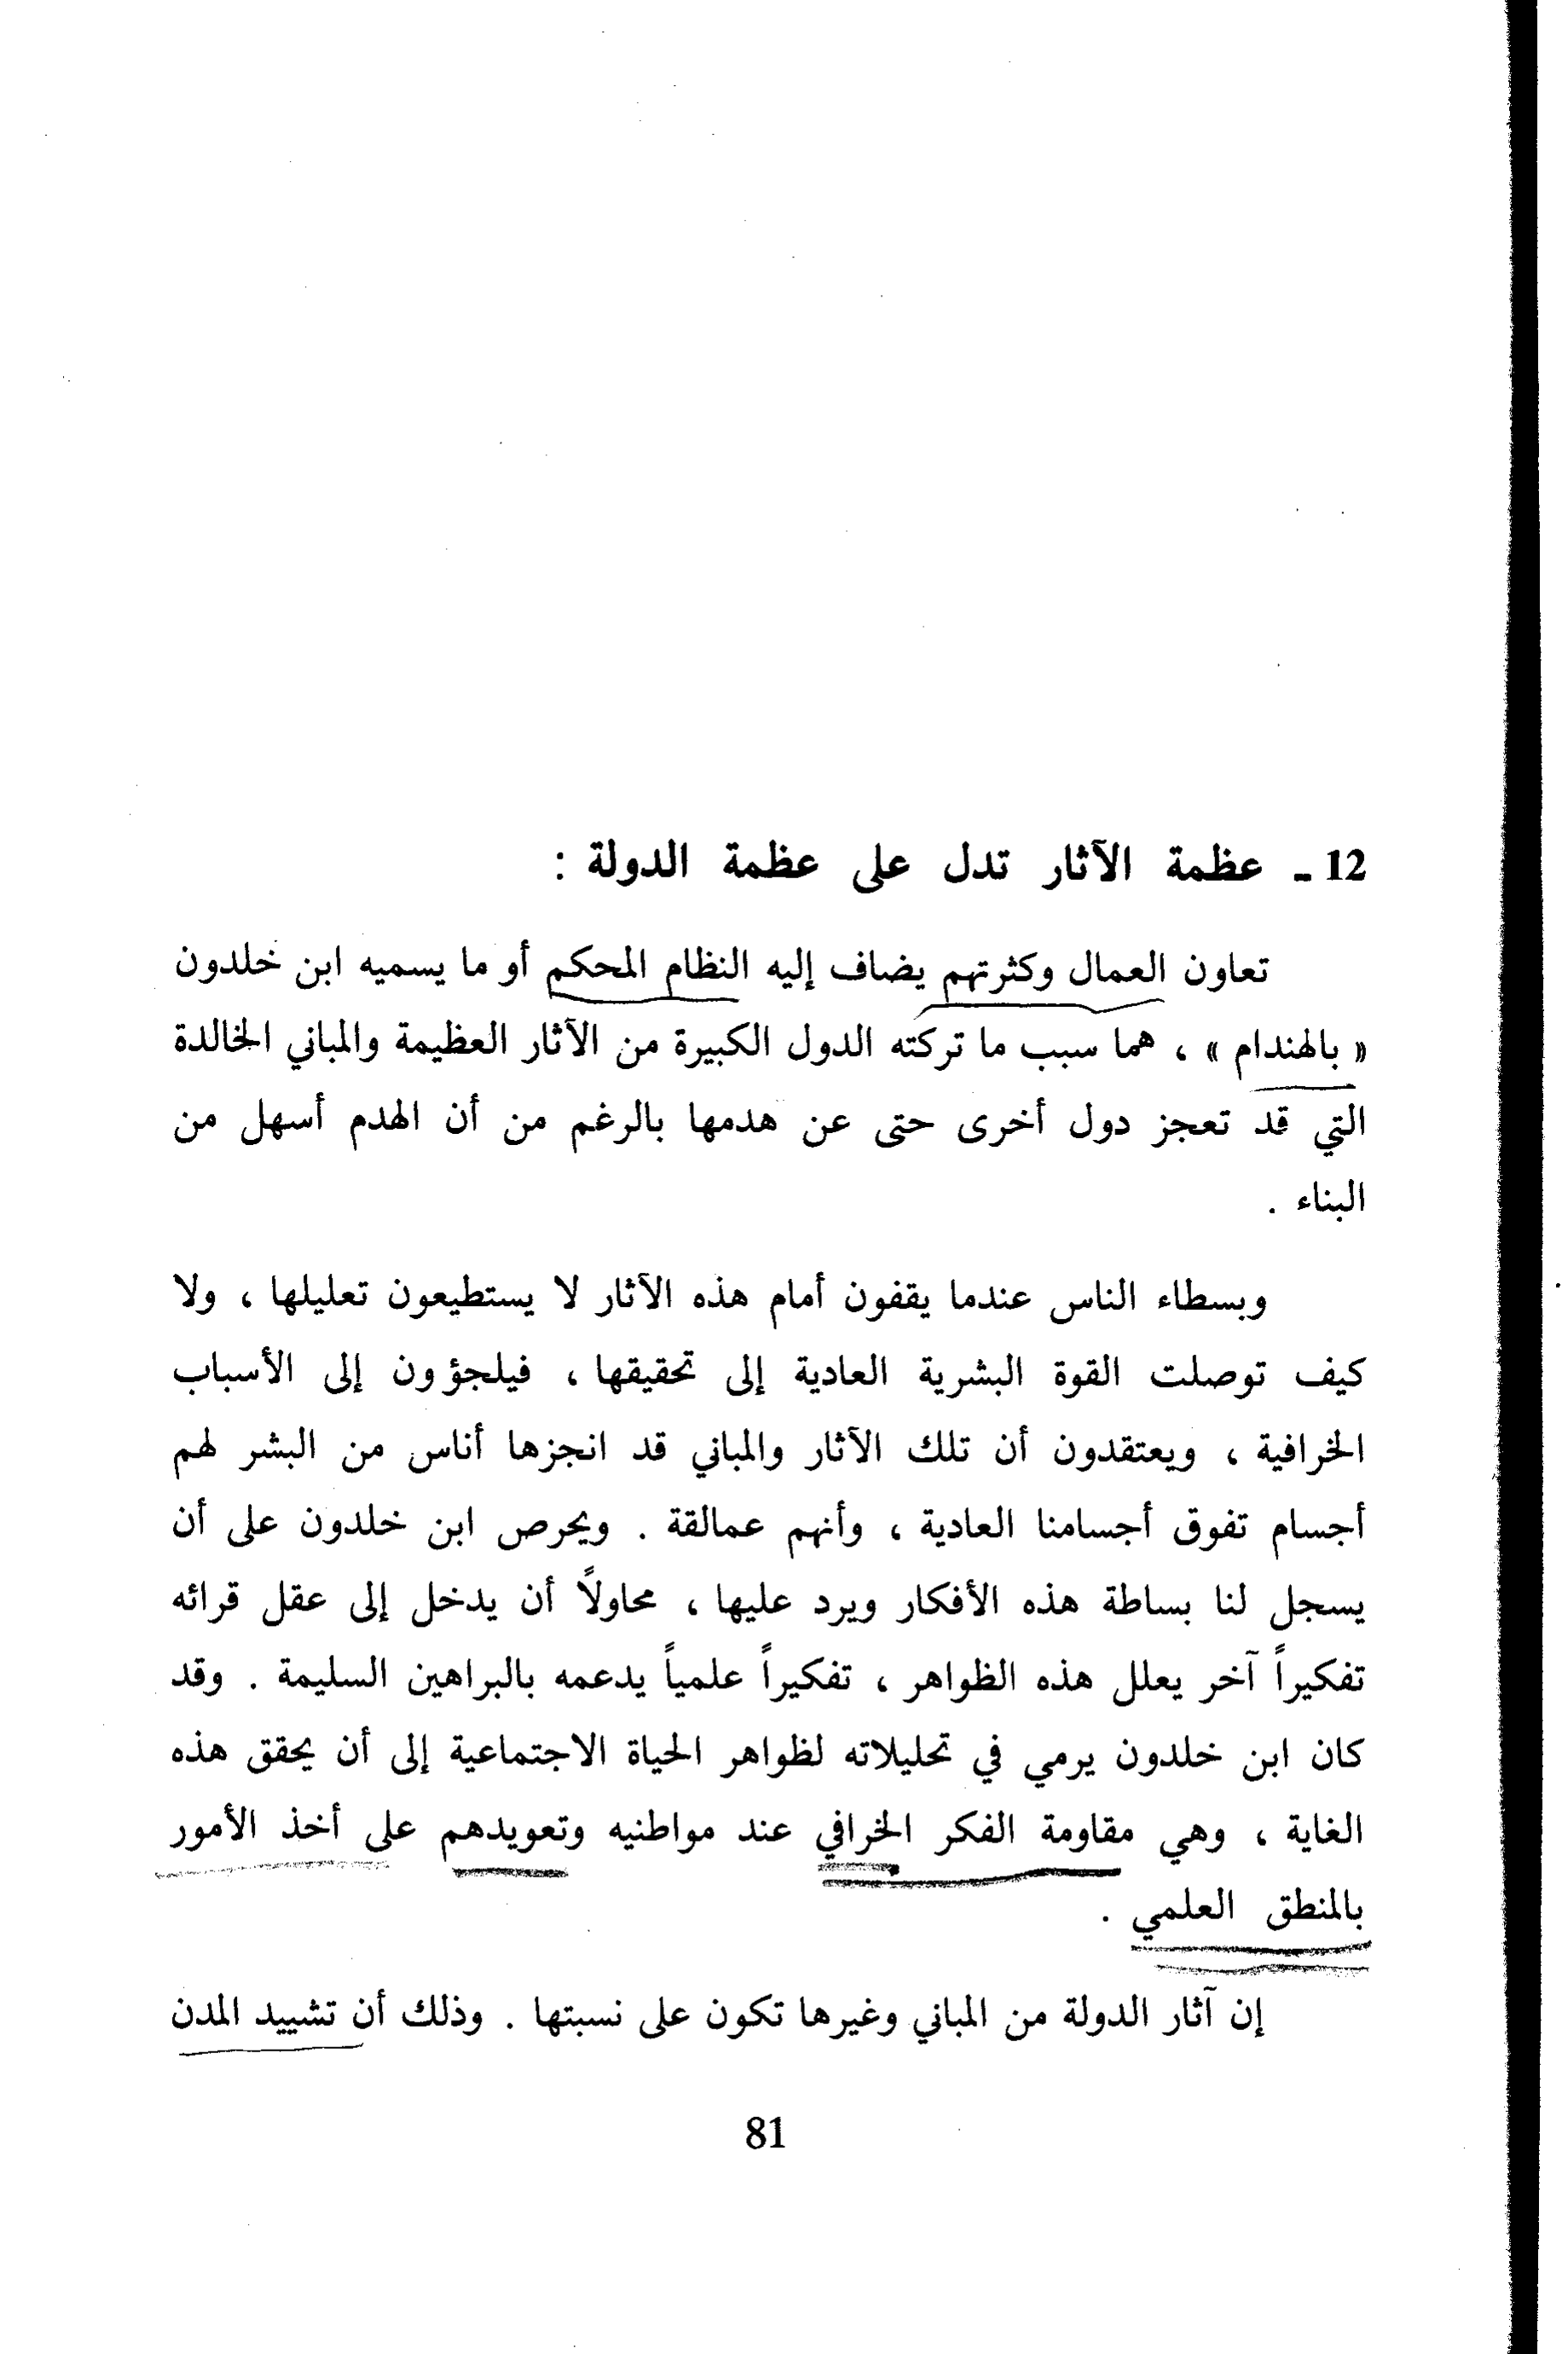 12 ـ عظمة الآثار تدل على عظمة الدولة :
تعاون العمال وكثرتهم يضاف إليه النظام المحكم أو ما يسميه ابن خلدون
« بالهندام » ، هما سبب ما تركته الدول الكبيرة من الآثار العظيمة والمباني الخالدة
التي قد تعجز دول أخرى حتى عن هدمها بالرغم من أن الهدم أسهل من
البناء .
وبسطاء الناس عندما يقفون أمام هذه الآثار لا يستطيعون تعليلها ، ولا
كيف توصلت القوة البشرية العادية إلى تحقيقها ، فيلجؤون إلى الأسباب
الخرافية ، ويعتقدون أن تلك الآثار والمباني قد انجزها أناس من البشر لهم
أجسام تفوق أجسامنا العادية ، وأنهم عمالقة . ويحرص ابن خلدون على أن
يسجل لنا بساطة هذه الأفكار ويرد عليها ، محاولاً أن يدخل إلى عقل قرائه
تفكيراً آخر يعلل هذه الظواهر ، تفكيراً علمياً يدعمه بالبراهين السليمة . وقد
كان ابن خلدون يرمي في تحليلاته لظواهر الحياة الاجتماعية إلى أن يحقق هذه
الغاية ، وهي مقاومة الفكر الخرافي عند مواطنيه وتعويدهم على أخذ الأمور
بالمنطق العلمي .
إن آثار الدولة من المباني وغيرها تكون على نسبتها . وذلك أن تشييد المدن
81